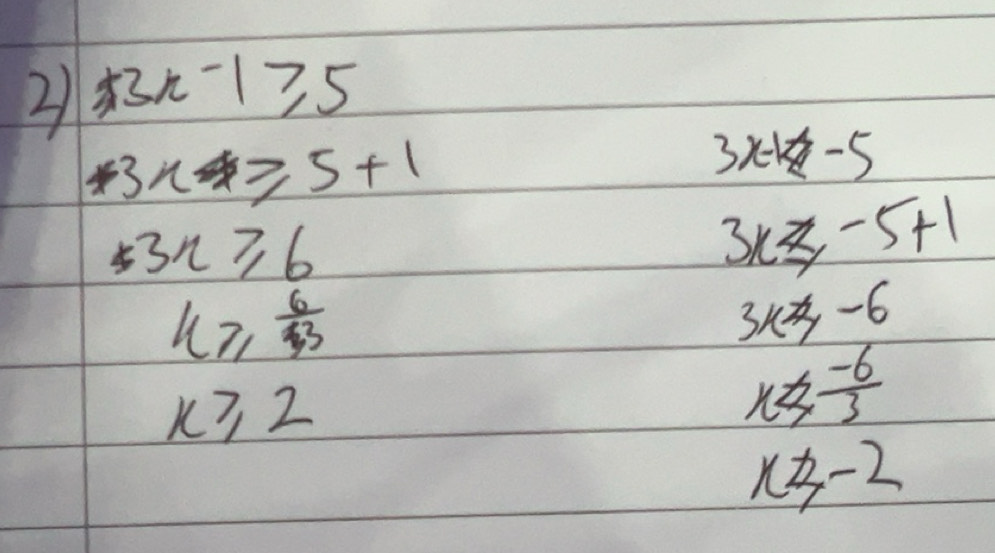 2) 3x - 1 ≥ 5
3x ≥ 5 + 1
3x ≥ 6
x ≥ 6/3
x ≥ 2
3x-1 ≤ -5
3x ≤ -5+1
3x ≤ -6
x ≤ -6/3
x ≤ -2